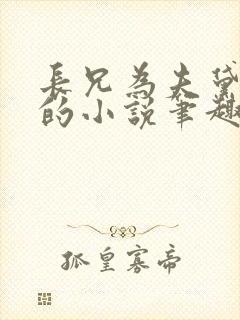 長兄為夫黛
的小說筆趣
孤皇寡帝